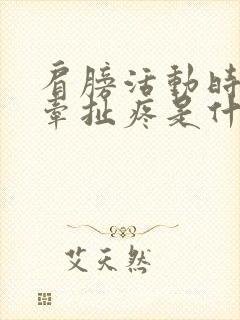 肩膀活動時
牽扯疼是什
艾天然